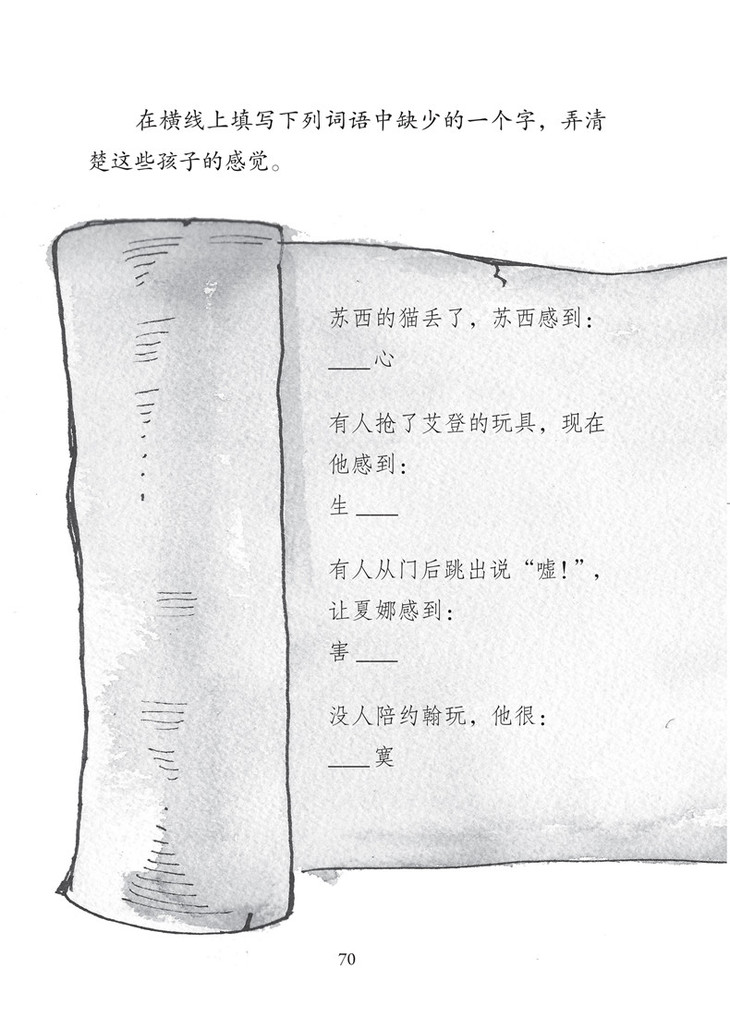 在横线上填写下列词语中缺少的一个字，弄清
楚这些孩子的感觉。
苏西的猫丢了，苏西感到：
___心
有人抢了艾登的玩具，现在
他感到：
生___
有人从门后跳出说“嘘！”，
让夏娜感到：
害___
没人陪约翰玩，他很：
___寞
70